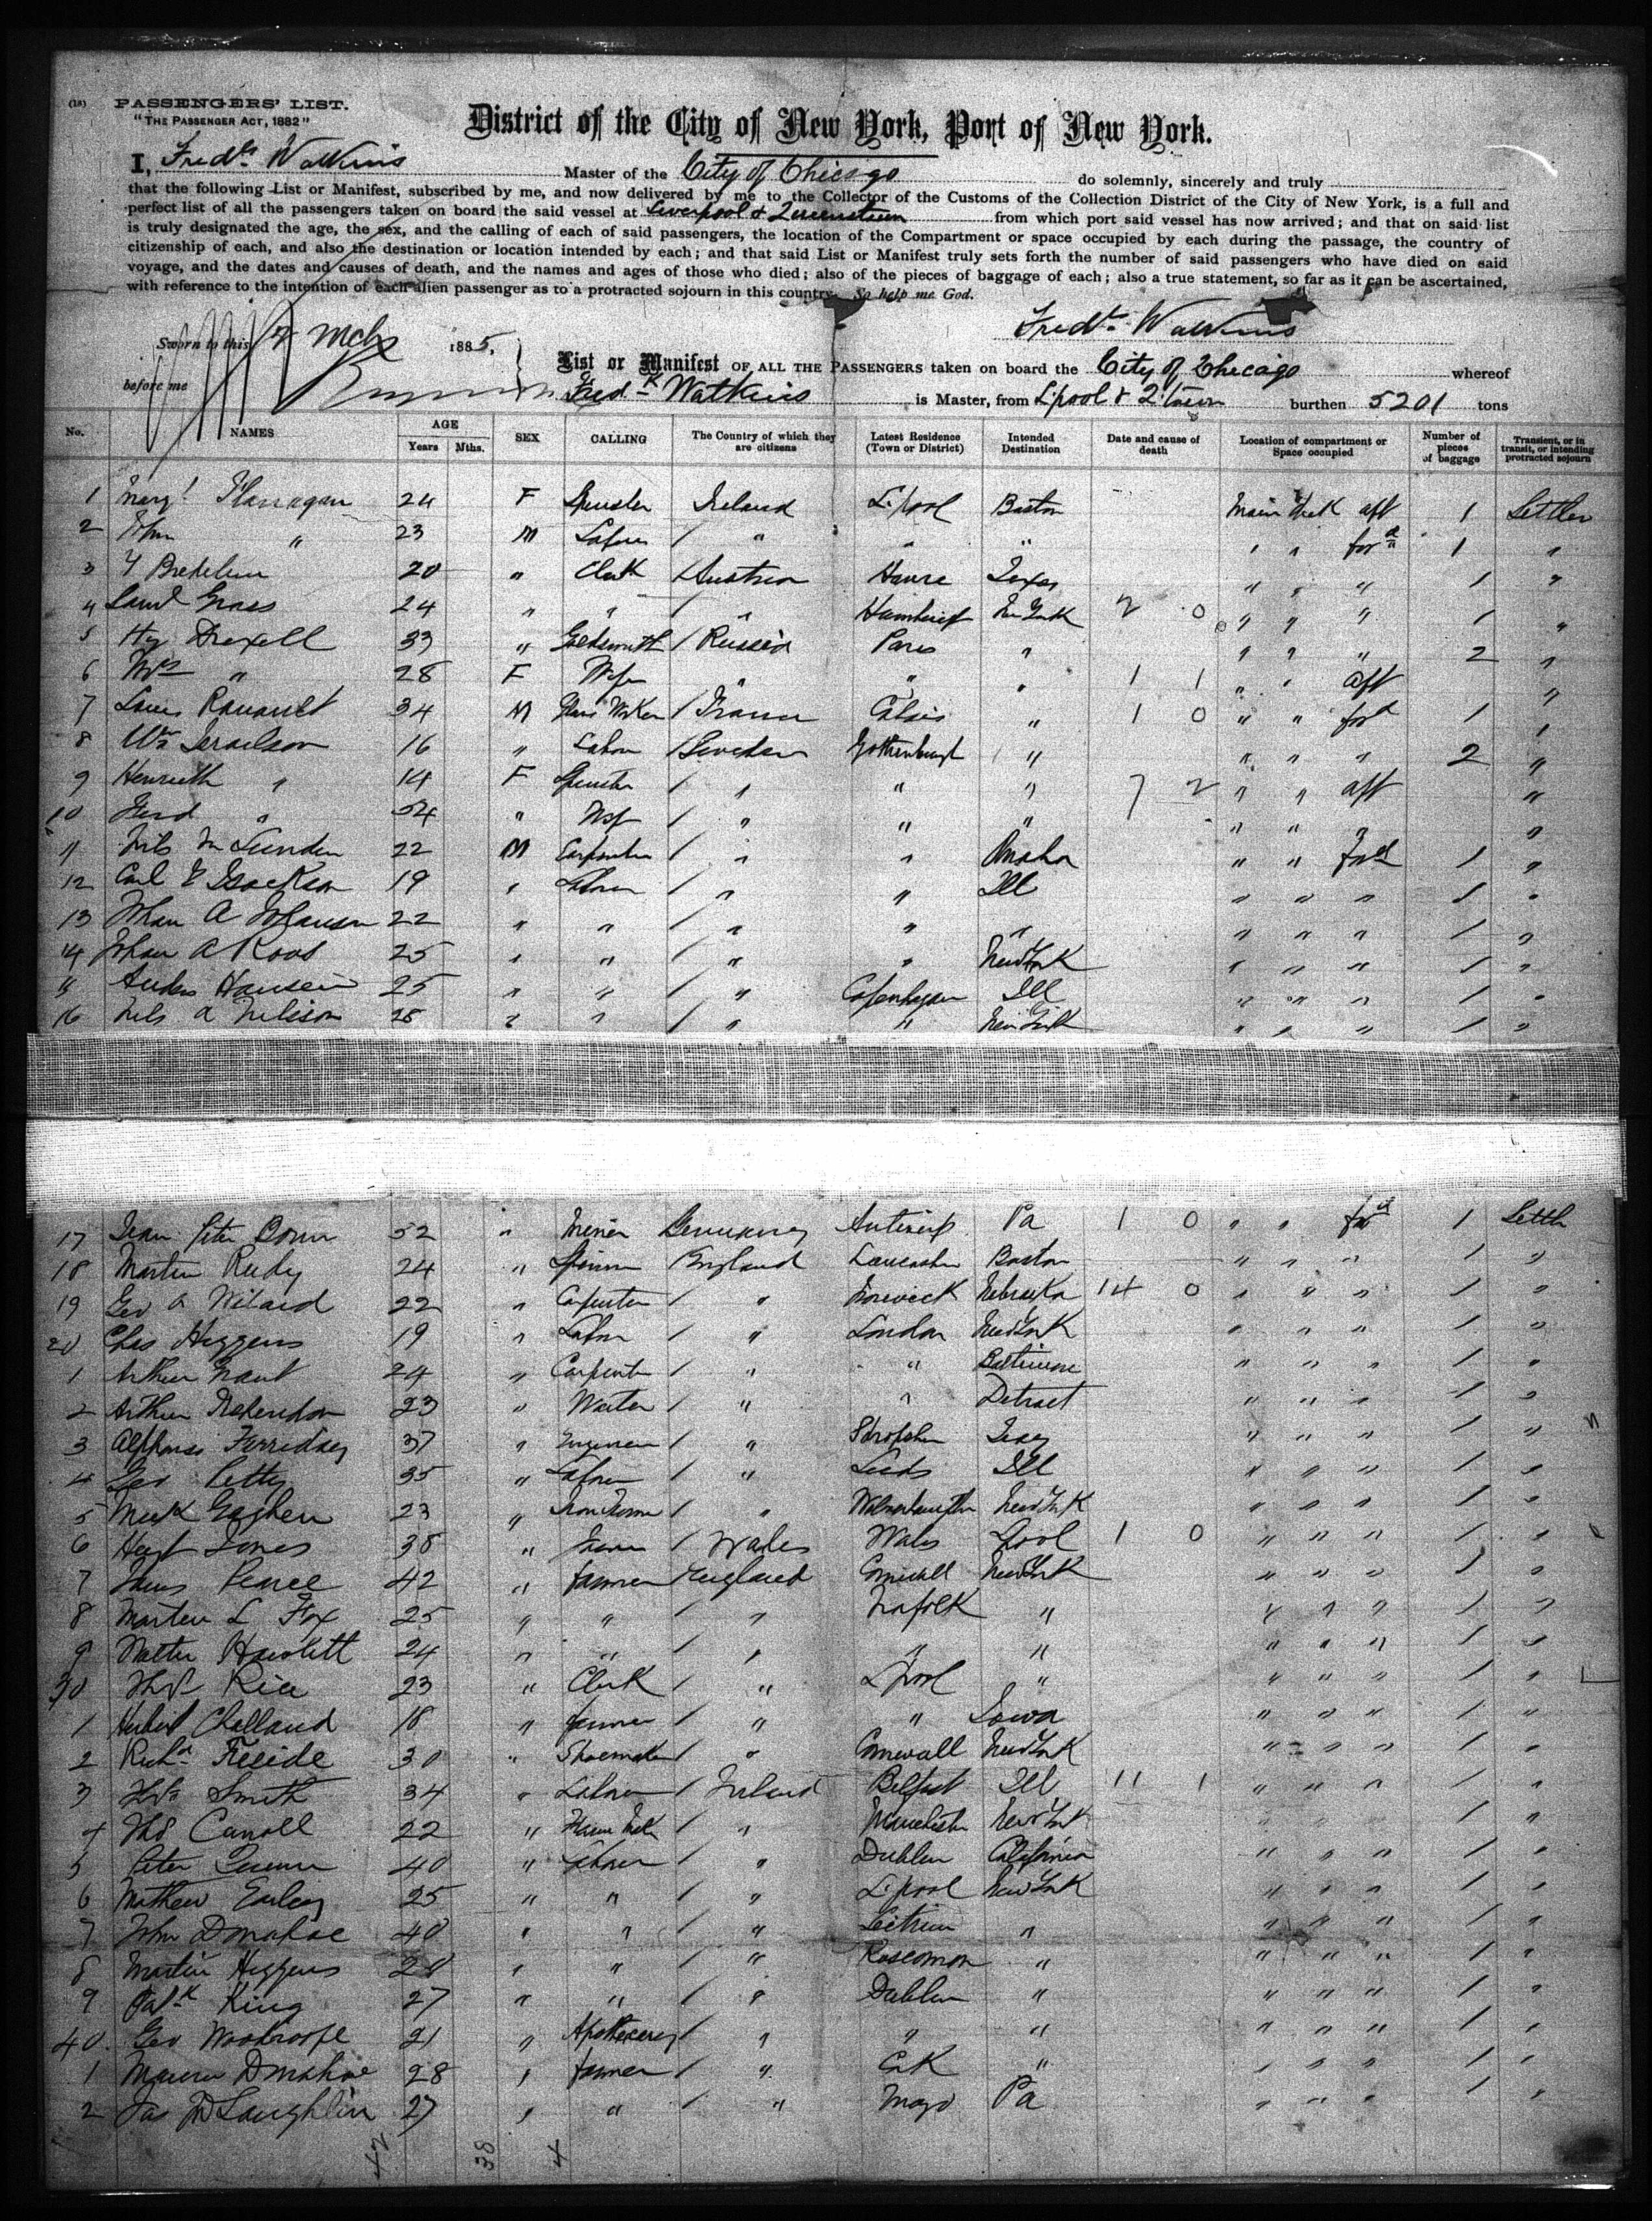 (18) PASSENGERS' LIST.
"THE PASSENGER ACT, 1882"
District of the City of New York, Port of New York.
I, Fredk Watkins Master of the City of Chicago do solemnly, sincerely and truly
that the following List or Manifest, subscribed by me, and now delivered by me to the Collector of the Customs of the Collection District of the City of New York, is a full and
perfect list of all the passengers taken on board the said vessel at Liverpool & Queenstown from which port said vessel has now arrived; and that on said list
is truly designated the age, the sex, and the calling of each of said passengers, the location of the Compartment or space occupied by each during the passage, the country of
citizenship of each, and also the destination or location intended by each; and that said List or Manifest truly sets forth the number of said passengers who have died on said
voyage, and the dates and causes of death, and the names and ages of those who died; also of the pieces of baggage of each; also a true statement, so far as it can be ascertained,
with reference to the intention of each alien passenger as to a protracted sojourn in this country. So help me God.
Fredk Watkins
Sworn to this Mch 1885,
before me
List or Manifest OF ALL THE PASSENGERS taken on board the City of Chicago whereof
Fredk Watkins is Master, from L'pool & Q'town burthen 5201 tons
No. NAMES AGE Years Mths. SEX CALLING The Country of which they are citizens Latest Residence (Town or District) Intended Destination Date and cause of death Location of compartment or Space occupied Number of pieces of baggage Transient, or in transit, or intending protracted sojourn
1 Margt Flanagan 24 F Spinster Ireland L'pool Boston Main Deck aft 1 Settler
2 " 23 M Laborer / " " " " " ford 1 "
3 20 " Clerk / Austria Havre Texas " " " 1 "
4 Saml Gross 24 " " / " New York 2 0 " " " 1 "
5 Hy Drexell 33 " Goldsmith / Russia Paris " " " " 2 "
6 Mrs " 28 F Wife " " " 1 1 " " aft "
7 Louis 34 M Glass Worker / France Calais " 1 0 " " ford 1 "
8 Wm Israelson 16 " Labor / Sweden Gothenburgh " " " " 2 "
9 " 14 F Spinster / " " " 7 2 " " aft "
10 " 54 " Wife / " " " " " " "
11 Nils M Lunden 22 M Carpenter / " " Omaha " " ford 1 "
12 Carl E Isackson 19 " Laborer / " " Ill " " " 1 "
13 Johan A Johanson 22 " " / " " " " " " 1 "
14 Johan A Roos 25 " " / " " New York " " " 1 "
15 Anders Hansen 25 " " / " Copenhagen Ill " " " 1 "
16 Nils A Nilsson 28 " " / " " New York " " " 1 "
17 Jean Peter 52 " Miner Germany Antwerp Pa 1 0 " " ford 1 Settler
18 Martin Ruby 24 " England Lancashire Boston " " " 1 "
19 Geo A Wilard 22 " Carpenter / " Nebraska 14 0 " " " 1 "
20 Chas Higgens 19 " Labor / " London New York " " " 1 "
1 Arthur Grant 24 " Carpenter / " " Baltimore " " " 1 "
2 Arthur 23 " Waiter / " " Detroit " " " 1 "
3 Alphonso Farriday 37 " Engineer / " Shropshire " " " 1 "
4 Geo Petty 35 " Laborer / " Leeds Ill " " " 1 "
5 23 " / " Wolverhampton New York " " " 1 "
6 Jones 38 " / Wales Wales 1 0 " " " 1 "
7 James Pearce 42 " farmer England Cornwall New York " " " 1 "
8 Marten L Fox 25 " " / " Norfolk " " " " 1 "
9 Walter Howlett 24 " " / " " " " " " 1 "
30 Thos Rice 23 " Clerk / " L'pool " " " " 1 "
1 Herbert Challand 18 " farmer / " " Iowa " " " 1 "
2 Richd 30 " Shoemaker / " Cornwall New York " " " 1 "
3 Smith 34 " Laborer / Ireland Belfast Ill 11 1 " " " 1 "
4 Thos Carroll 22 " / " Manchester New York " " " 1 "
5 Peter Quinn 40 " Laborer / " Dublin California " " " 1 "
6 Mathew Earley 25 " " / " L'pool New York " " " 1 "
7 John Donahoe 40 " " / " Leitrim " " " " 1 "
8 Martin Higgens 28 " " / " Roscomon " " " " 1 "
9 Patk King 27 " " / " Dublin " " " " 1 "
40 Geo Woodroofe 21 " Apothecary / " " " " " " 1 "
1 Donahoe 28 " farmer / " Cork " " " " 1 "
2 Jas McLaughlin 27 " " / " Mayo Pa " " " 1 "
42 38 4